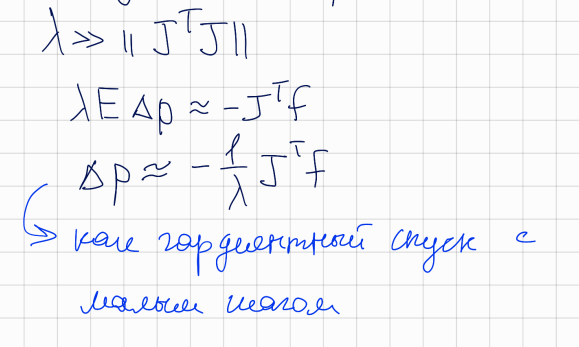 λ >> || JᵀJ ||
λE Δp ≈ -Jᵀf
Δp ≈ - 1/λ Jᵀf
как гардиентный спуск с
малым шагом